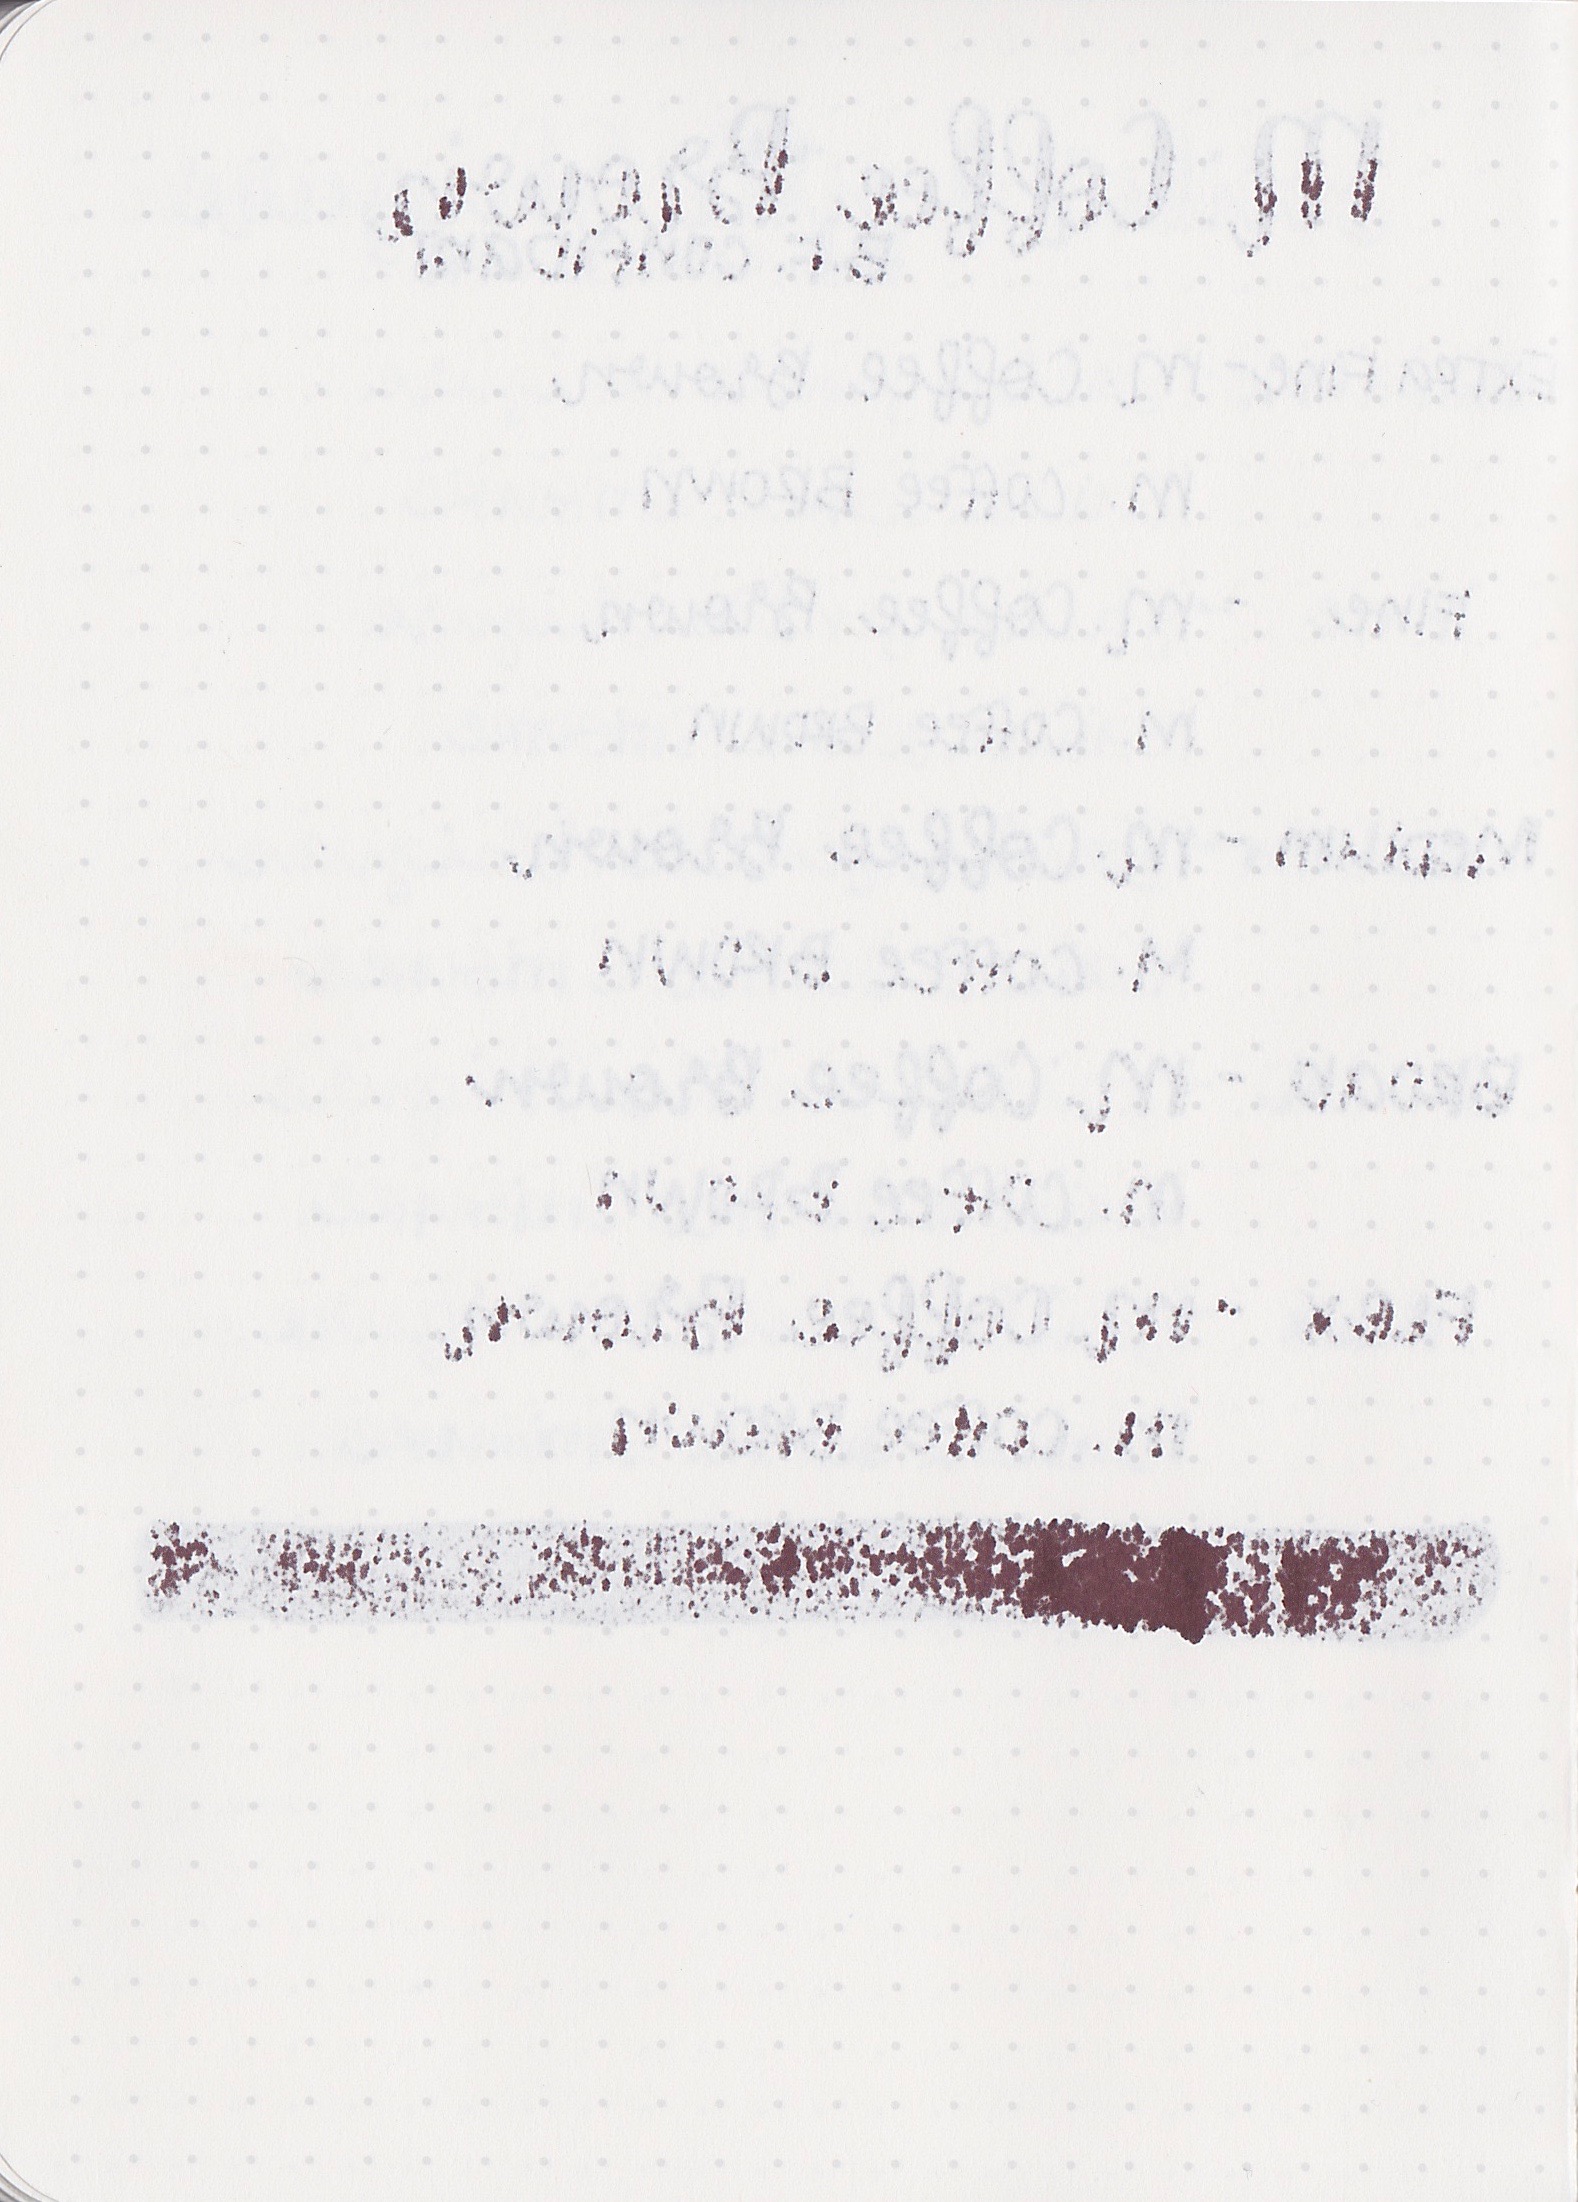 M. Coffee Brown
Extra Fine - M. Coffee Brown
M. COFFEE BROWN
Fine - M. Coffee Brown
M. COFFEE BROWN
Medium - M. Coffee Brown
M. COFFEE BROWN
BROAD - M. Coffee Brown
M. COFFEE BROWN
Flex - M. Coffee Brown
M. COFFEE BROWN